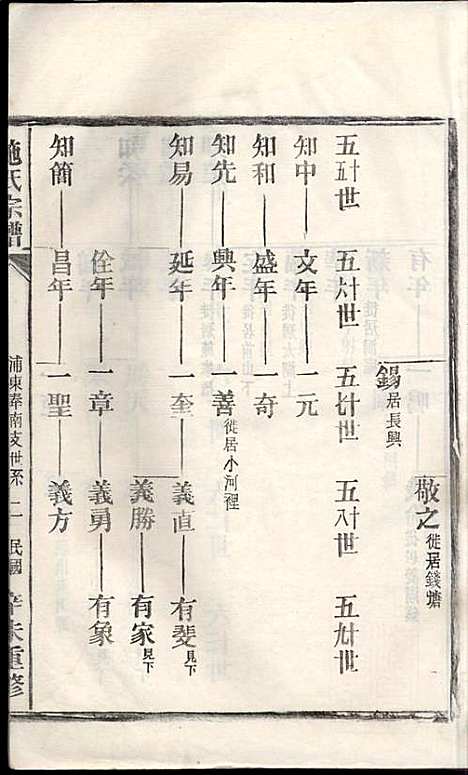 敬之徙居錢塘
鍚居長興
五五十世 五六十世 五七十世 五八十世 五九十世
知中 文年 一元
知和 盛年 一奇
知先 興年 一善徙居小河裡
知易 延年 一奎 義直 有斐見下
義勝 有家見下
佺年 一章 義勇 有象
知簡 昌年 一聖 義方
施氏宗譜 浦東奉南支世系 二 民國 辛未重修